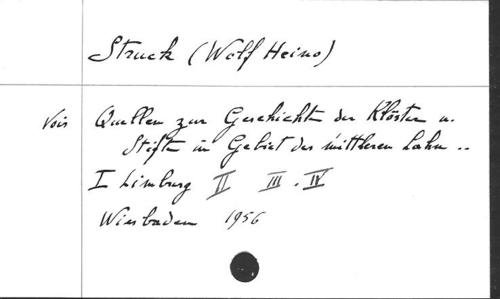 Struck (Wolf Heino)
Vois Quellen zur Geschichte der Klöster u.
Stifte im Gebiet der mittleren Lahn ..
I Limburg II III. IV
Wiesbaden 1956